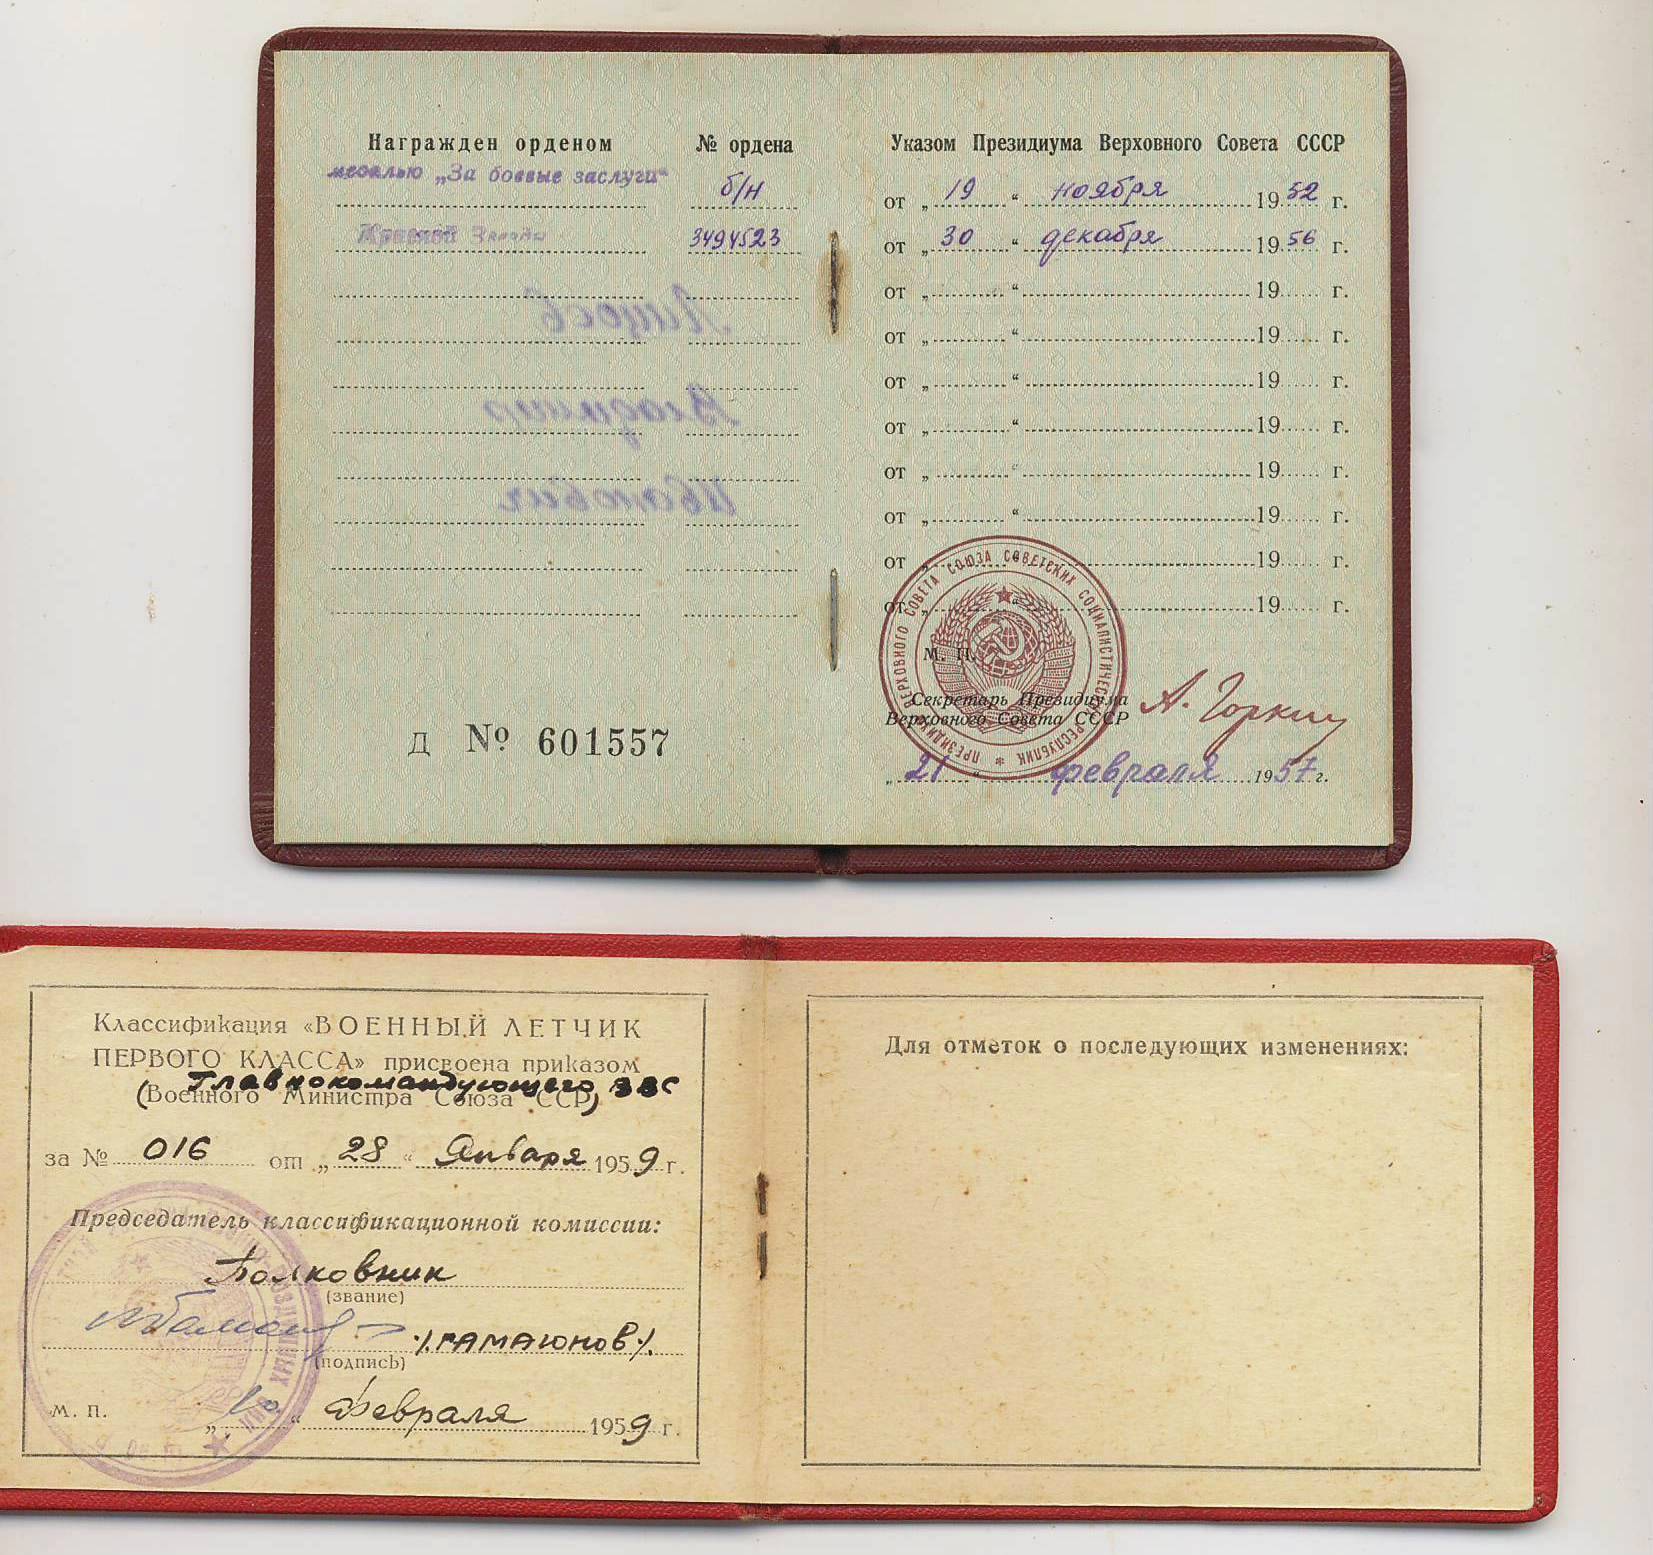 Награжден орденом № ордена
медалью „За боевые заслуги“ б/н
Красной Звезды 3494523
Владимир
Иванович
Д № 601557
Указом Президиума Верховного Совета СССР
от „ 19 “ ноября 1952 г.
от „ 30 “ декабря 1956 г.
от „ “ 19 г.
от „ “ 19 г.
от „ “ 19 г.
от „ “ 19 г.
от „ “ 19 г.
от „ “ 19 г.
от „ “ 19 г.
от „ “ 19 г.
ПРЕЗИДИУМ ВЕРХОВНОГО СОВЕТА СОЮЗА СОВЕТСКИХ СОЦИАЛИСТИЧЕСКИХ РЕСПУБЛИК
М. П.
Секретарь Президиума
Верховного Совета СССР
А. Горкин
„ 21 “ февраля 1957 г.
Классификация «ВОЕННЫЙ ЛЕТЧИК
ПЕРВОГО КЛАССА» присвоена приказом
Главнокомандующего ВВС
(Военного Министра Союза ССР)
за № 016 от „ 28 “ Января 1959 г.
Председатель классификационной комиссии:
Полковник
(звание)
/ГАМАЮНОВ/.
(подпись)
М. П.
„ “ Февраля 1959 г.
Для отметок о последующих изменениях: